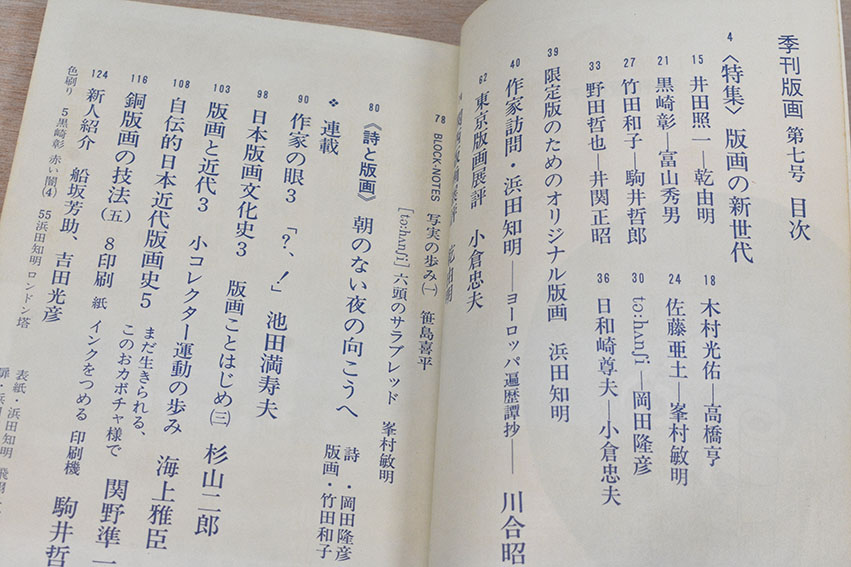 季刊版画 第七号 目次
4 〈特集〉 版画の新世代
15 井田照一―乾由明
18 木村光佑―高橋亨
21 黒崎彰―富山秀男
24 佐藤亜土―峯村敏明
27 竹田和子―駒井哲郎
30 tə:hʌnʃi―岡田隆彦
33 野田哲也―井関正昭
36 日和崎尊夫―小倉忠夫
39 限定版のためのオリジナル版画 浜田知明
40 作家訪問・浜田知明―ヨーロッパ遍歴譚抄― 川合昭
62 東京版画展評 小倉忠夫
78 BLOCK・NOTES 写実の歩み(一) 笹島喜平
[tə:hʌnʃi] 六頭のサラブレッド 峯村敏明
80 《詩と版画》 朝のない夜の向こうへ 詩・岡田隆彦
版画・竹田和子
❖ 連載
90 作家の眼3 「?、!」 池田満寿夫
98 日本版画文化史3 版画ことはじめ(三) 杉山二郎
103 版画と近代3 小コレクター運動の歩み 海上雅臣
108 自伝的日本近代版画史5 まだ生きられる、
このおカボチャ様で 関野準一
116 銅版画の技法(五) 8印刷 紙 インクをつめる 印刷機 駒井哲
124 新人紹介 船坂芳助、吉田光彦
色刷り 5黒崎彰 赤い闇(4) 55浜田知明 ロンドン塔
表紙・浜田知明